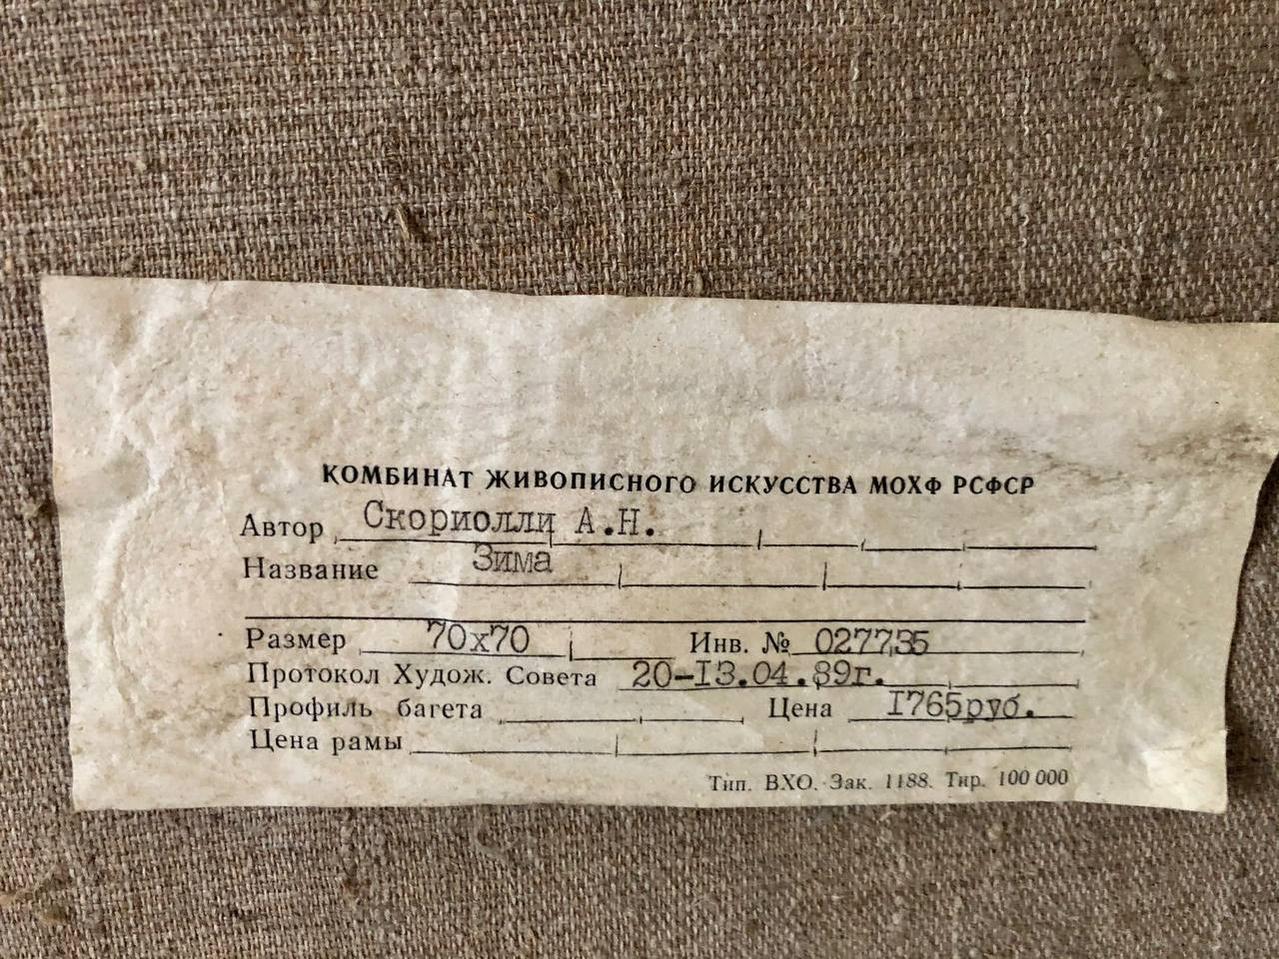 КОМБИНАТ ЖИВОПИСНОГО ИСКУССТВА МОХФ РСФСР
Автор Скориолли А.Н.
Название Зима
Размер 70х70 Инв. № 027735
Протокол Худож. Совета 20-13.04.89г.
Профиль багета Цена 1765руб.
Цена рамы
Тип. ВХО. Зак. 1188. Тир. 100 000